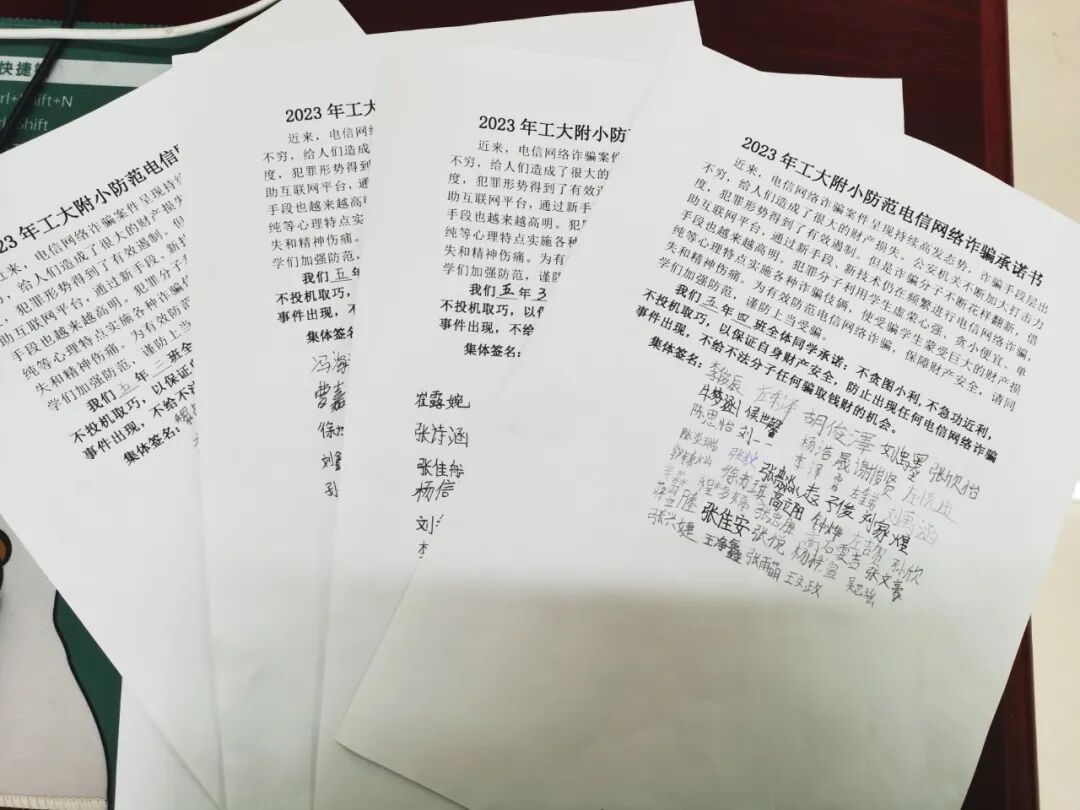 快捷
rl+Shift+N
Shift
23年工大附小防范电信网
近来,电信网络诈骗案件呈现持续
不穷,给人们造成了很大的财产损失
度,犯罪形势得到了有效遏制。但
助互联网平台,通过新手段、新技
手段也越来越高明。犯罪分子
纯等心理特点实施各种诈骗
失和精神伤痛。为有效防范
学们加强防范,谨防上
我们五年二班全体
不投机取巧,以保证
事件出现,不给不
集体签名:
2023年工大
近来,电信网络
不穷,给人们造成
度,犯罪形势得到了有
助互联网平台,通
手段也越来越高
纯等心理特点
失和精神伤痛。
学们加强防
我们五
不投机取巧,
事件出现,
集体签名
冯海
曹嘉
徐
刘鑫
孙
2023年工大附小防
近来,电信网络诈骗案件
不穷,给人们造成了很大
度,犯罪形势得到了有效
助互联网平台,通过新手
手段也越来越高明。犯罪
纯等心理特点实施各种
失和精神伤痛。为有
学们加强防范,谨防
我们五年
不投机取巧,以保
事件出现,不给
集体签名:
崔露婉
张诗涵
张佳彤
杨信
刘
2023年工大附小防范电信网络诈骗承诺书
近来,电信网络诈骗案件呈现持续高发态势,诈骗手段层出
不穷,给人们造成了很大的财产损失。公安机关不断加大打击力
度,犯罪形势得到了有效遏制。但是诈骗分子不断花样翻新,借
助互联网平台,通过新手段、新技术仍在频繁进行电信网络诈骗,
手段也越来越高明。犯罪分子利用学生虚荣心强、贪小便宜、单
纯等心理特点实施各种诈骗伎俩,使受骗学生蒙受巨大的财产损
失和精神伤痛。为有效防范电信网络诈骗,保障财产安全,请同
学们加强防范,谨防上当受骗。
我们五年四班全体同学承诺:不贪图小利,不急功近利,
不投机取巧,以保证自身财产安全,防止出现任何电信网络诈骗
事件出现,不给不法分子任何骗取钱财的机会。
集体签名:李俊辰 胡俊澤 刘思墨 张欣怡
牛梦涵 侯世馨 杨浩晟 谢信贤
陈思怡 刘一一 李泽 刘雨涵
张焱 孟子俊 刘家煜
徐若琪 高立阳 钟烨
程梦婷 张忠梅 孙欣
张佳安 张悦 杨梓萱 张文豪
张兴婕 王净鑫 张雨萌 王文政 吴芯瑶